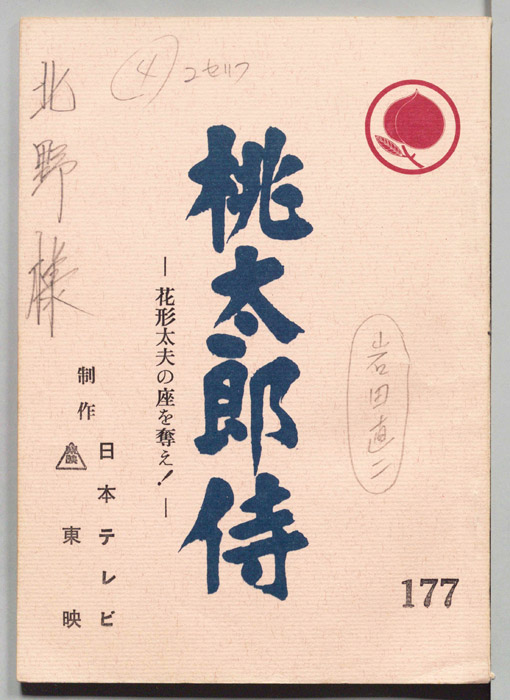 北野様
④ コセリフ
桃太郎侍
―花形太夫の座を奪え!―
岩田直二
制作
日本テレビ
東映
177